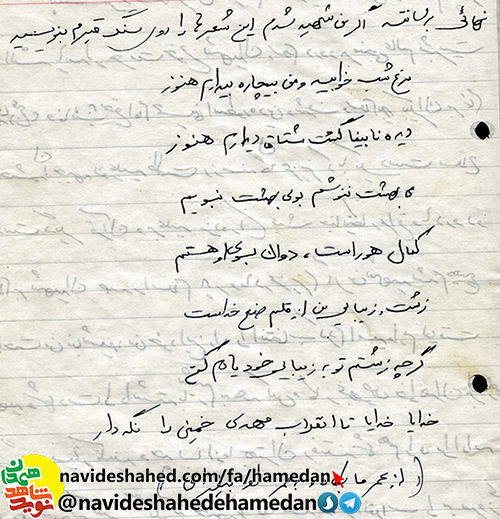 اگر من شهید شدم این شعرها را روی سنگ قبرم بنویسید
مرغ شب خوابید و من بیچاره بیدارم هنوز
دیده نابینا گشت مشتاق دیدارم هنوز
می بهشت ننوشم بوی بهشت نبویم
جمال هوراست، دوان بسوی او هستم
زشت و زیبایی من از قلم صنع خداست
گرچه زشتم تو به زیبایی خود یادم کن
خدایا خدایا تا انقلاب مهدی خمینی را نگه دار
از عمر ما
navideshahed.com/fa/hamedan
@navideshahedehamedan
نوید شاهد
همدان